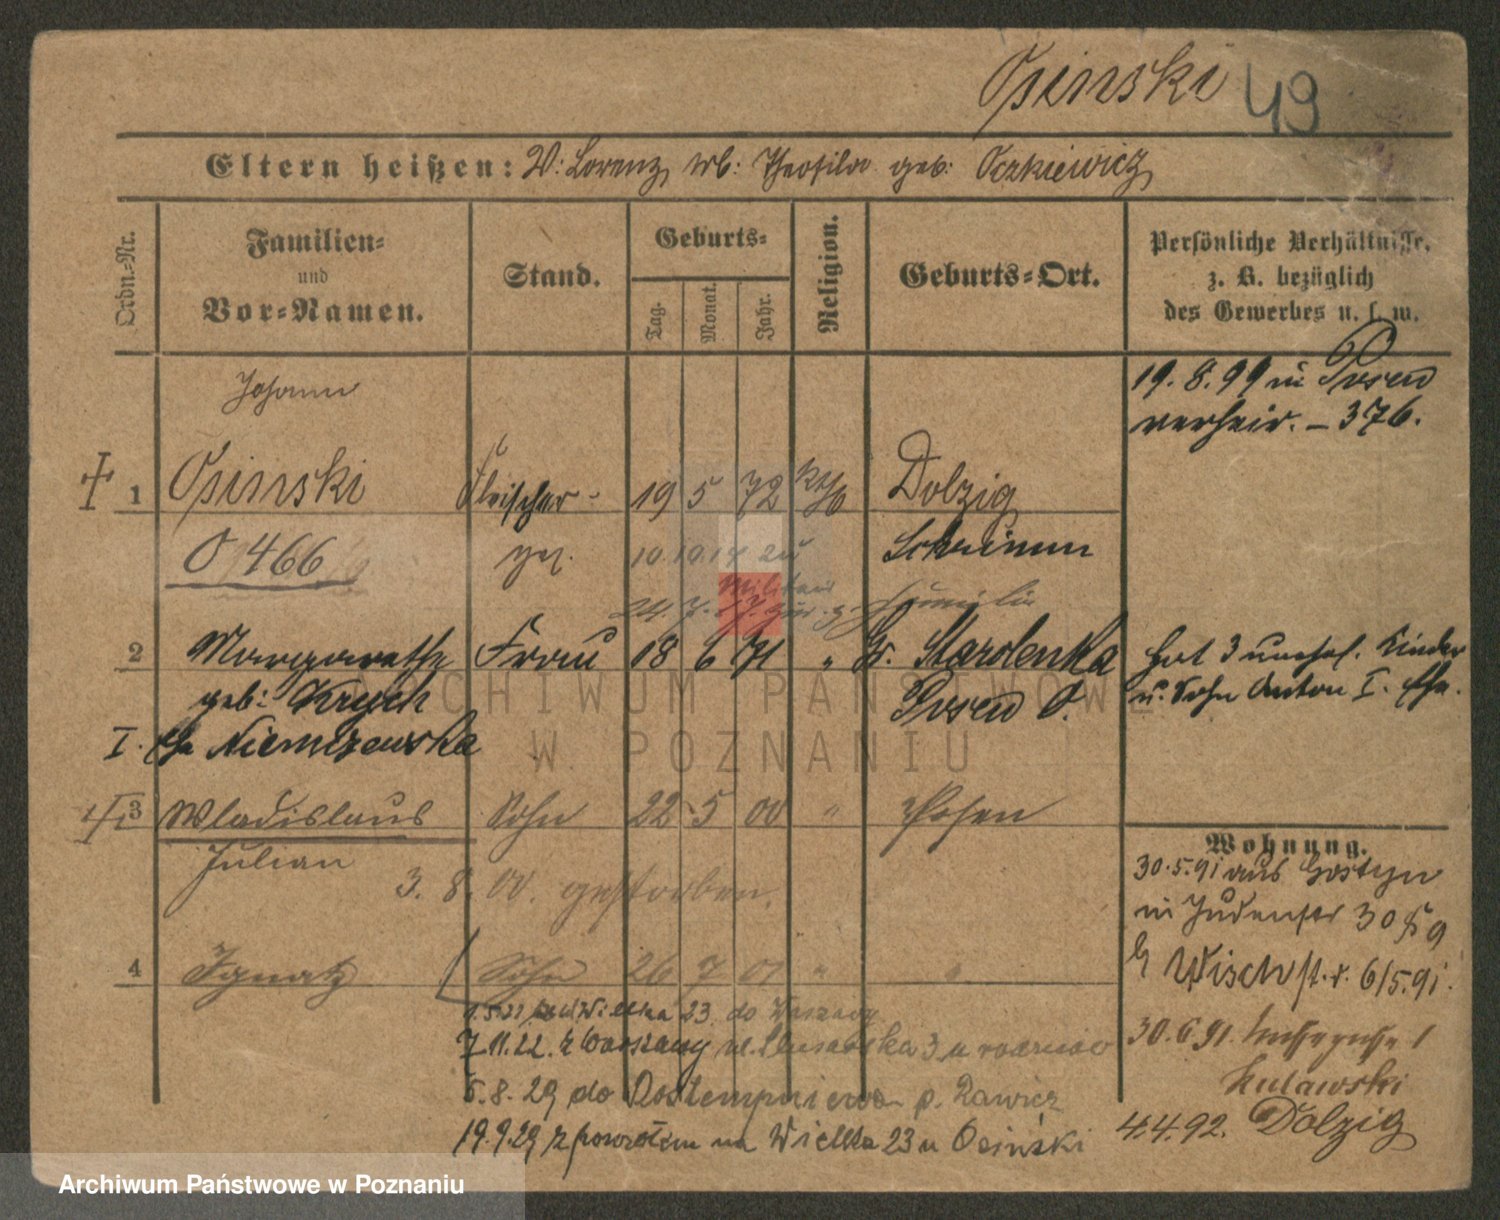 Osinski 49
Eltern heißen: V: Lorenz, M: Theofila geb: Oczkiewicz
Ordn.-Nr.
Familien-
und
Vor-Namen.
Stand.
Geburts-
Tag.
Monat.
Jahr.
Religion.
Geburts-Ort.
Persönliche Verhältnisse,
z. B. bezüglich
des Gewerbes u. s. w.
19. 8. 99 in Posen
verheir. – 376.
Johann
1 Osinski Fleischer- 19 5 72 kth Dolzig
O 466 ges. 10.10.17 zu Schrimm
Militair
24. 7. 17. zur. z. Familie
2 Margarethe Frau 18 6 71 " Gr. Starolenka
geb: Krych Posen O.
I. Ehe Niemczewska
Hat 3 unehel. Kinder
u. Sohn Anton I. Ehe.
3 Wladislaus Sohn 22 5 00 " Posen
Julian
3. 8. 00. gestorben.
4 Ignatz Sohn 26 7 01 " "
Wielka 23 do
7.11.22. z Warszawy ul. 3 u
5.8.29 do Rostempniewo p. Rawicz
19.9.29 z powrotem na Wielka 23 u Osiński
Wohnung.
30.5.91 aus Gostyn
in Judenstr 30
Wischst. 6/5.91.
30.6.91.
Kulawski
4.4.92. Dolzig
ARCHIWUM PAŃSTWOWE
W POZNANIU
Archiwum Państwowe w Poznaniu